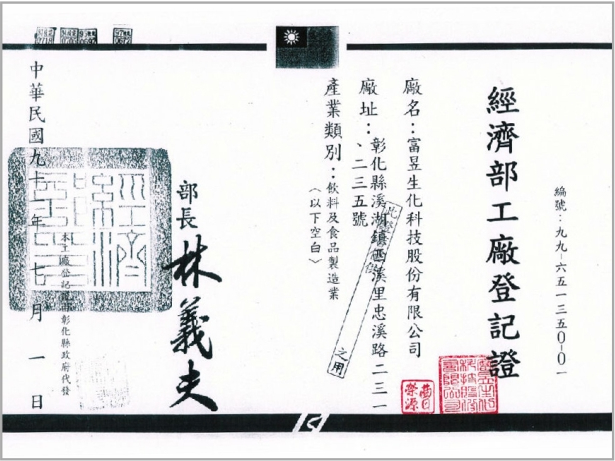 經濟部工廠登記證
編號：九九-六五一三五〇-〇一
廠名：富昱生化科技股份有限公司
廠址：彰化縣溪湖鎮西溪里忠溪路二三一
、二三五號
產業類別：飲料及食品製造業
（以下空白）
之用
部長 林義夫
本工廠登記證由彰化縣政府代發
中華民國九十一年七月一日